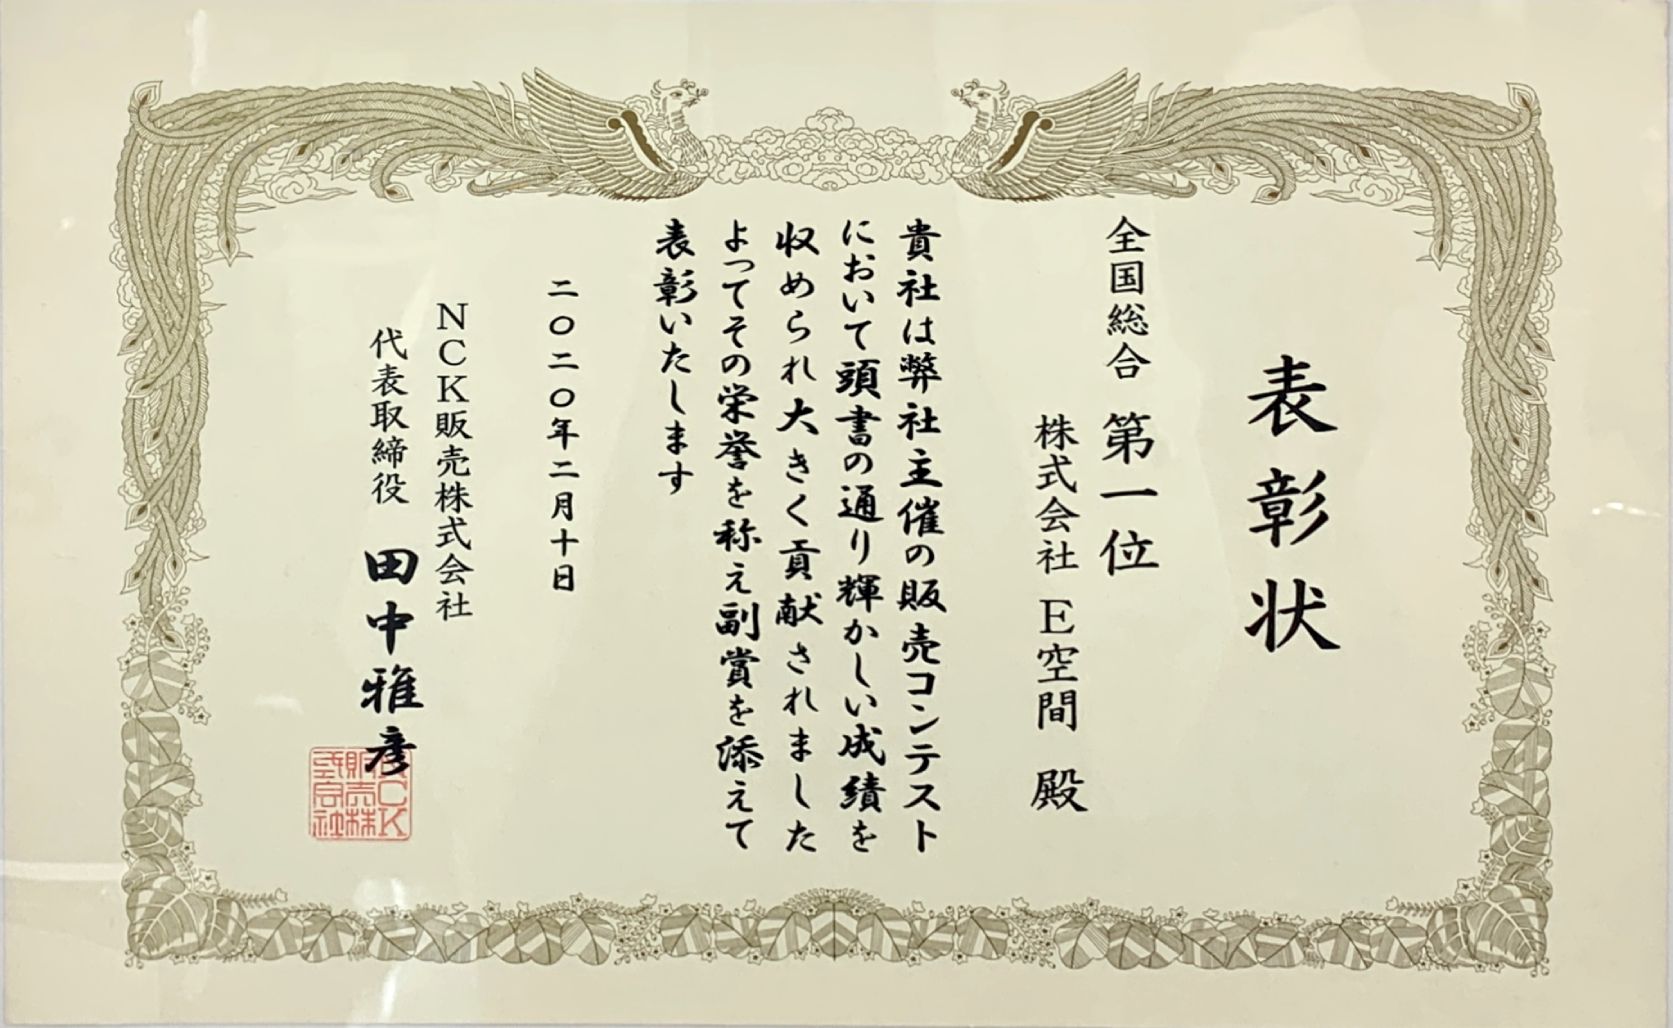 表彰状
全国総合 第一位
株式会社 E空間 殿
貴社は弊社主催の販売コンテスト
において頭書の通り輝かしい成績を
収められ大きく貢献されました
よってその栄誉を称え副賞を添えて
表彰いたします
二〇二〇年二月十日
NCK販売株式会社
代表取締役 田中雅彦